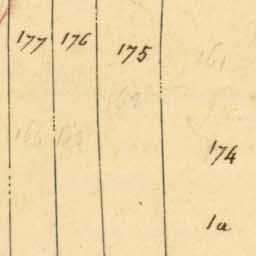 177 176 175
161
174
1a